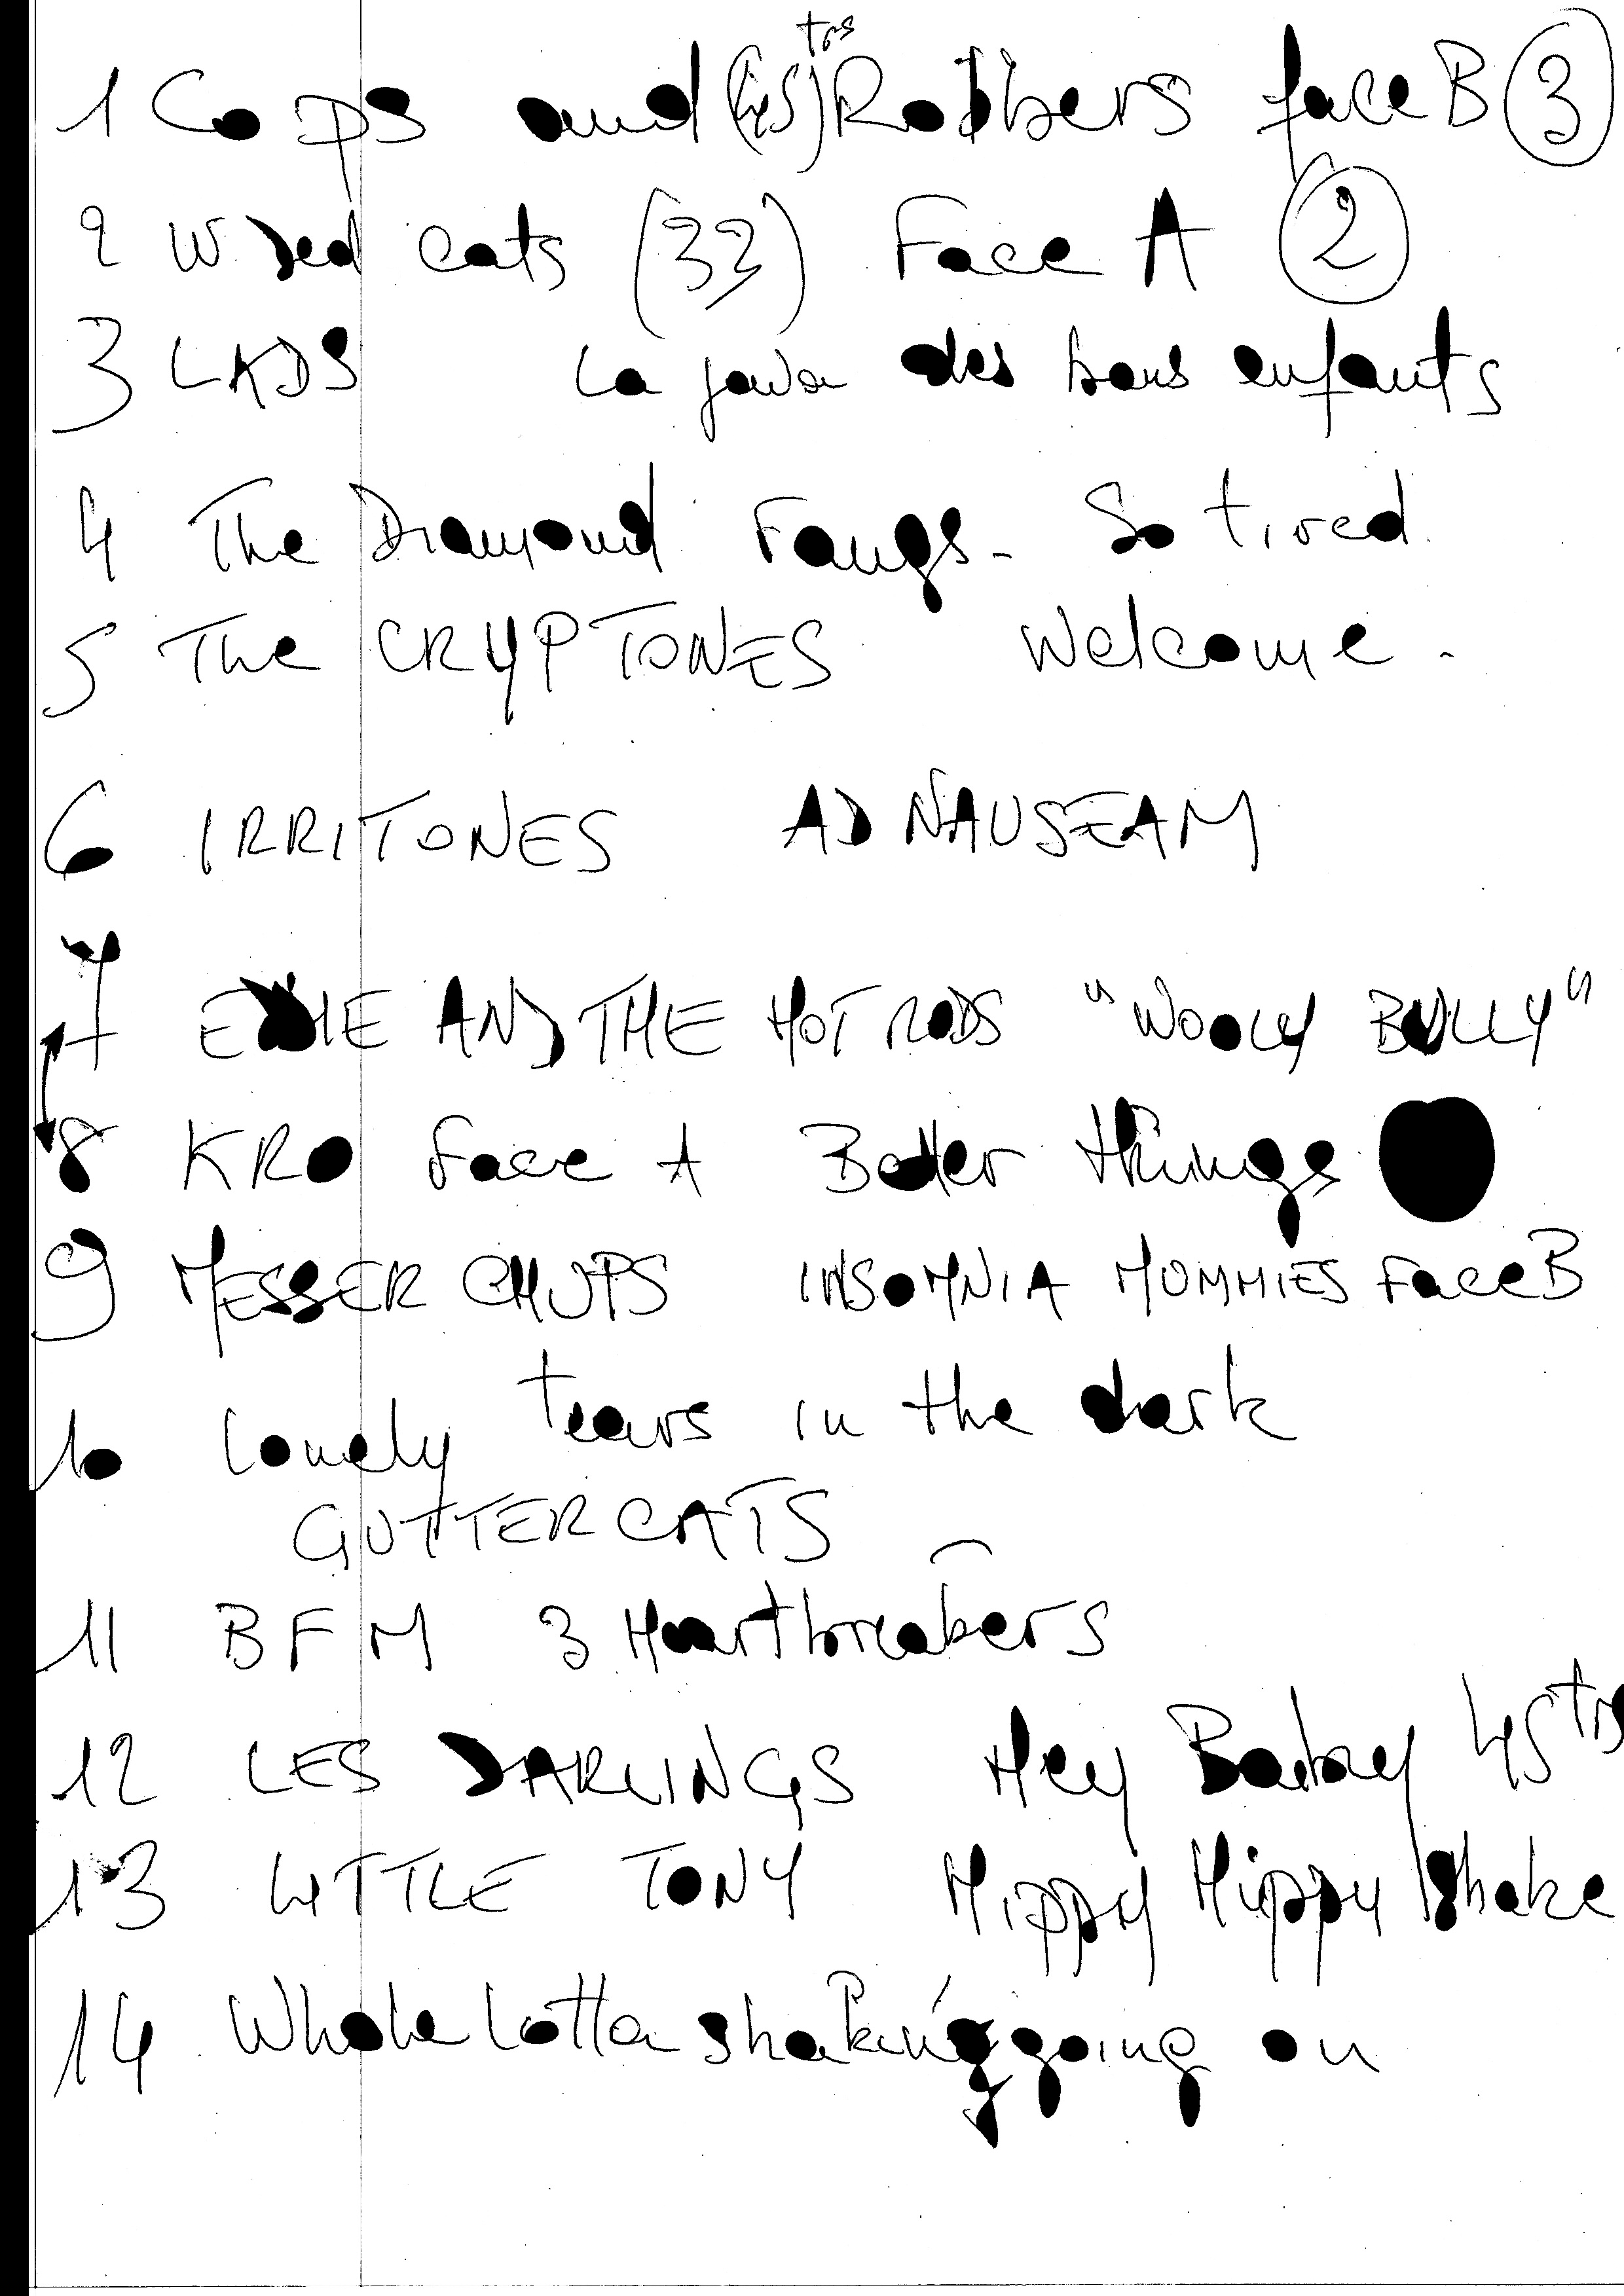 1 Cops and (45 trs) Robbers face B 3
2 Wired cats (33) Face A 2
3 LADS La java des bons enfants
4 The Diamond Fangs - So tired.
5 The CRYPTONES Welcome.
6 IRRITONES AD NAUSEAM
7 EDDIE AND THE HOT RODS "WOOLY BULLY"
8 KRO face A Better things
9 MESSER CHUPS INSOMNIA MUMMIES Face B
10 Lonely tears in the dark
GUTTERCATS
11 BFM 3 Heartbreakers
12 LES DARLINGS Hey Baby 45 trs
13 LITTLE TONY Hippy Hippy shake
14 Whole Lotta shaking going on